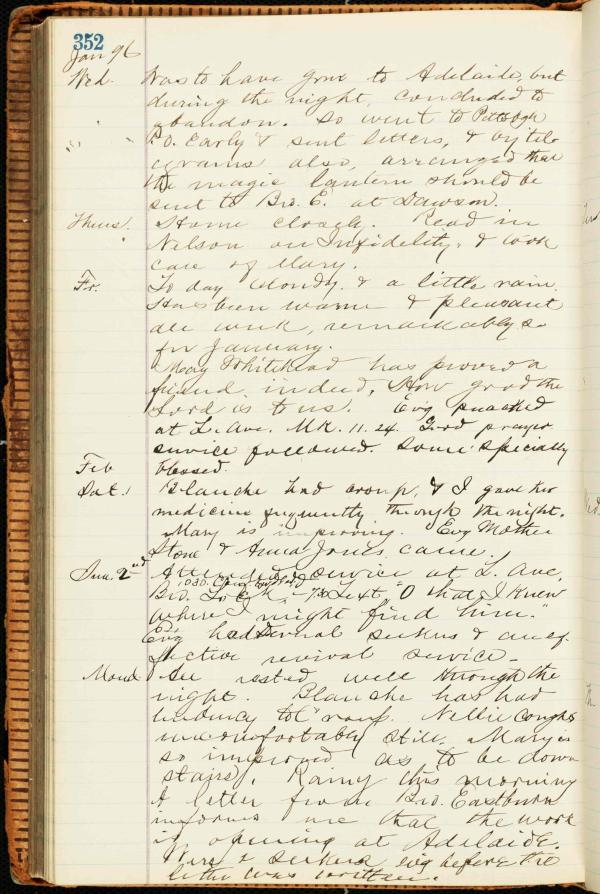 352
Jan 96
Wed. Was to have gone to Adelaide, but
during the night, concluded to
abandon. So went to Pittsbgh
P.O. Early & sent letters, & by tele
grams also, arranged that
the magic lantern should be
sent to Bro. E. at Dawson.
Thurs. Home closely. Read in
Nelson on Infidelity, & took
care of Mary.
Fr. To day cloudy & a little rain.
Has been warm & pleasant
all week, remarkably so
for January.
May Whitehead has proved a
friend indeed. How good the
Lord is to us. Ev'g preached
at L. Ave. Mk. 11.24. Good prayer
service followed. Some specially
Feb blessed.
Sat. 1 Blanche had croup, & I gave her
medicine frequently through the night.
Mary is improving. Evg Mother
Stone & Anna Jones came.
Sun. 2nd Attended service at L. Ave.
10.30.
Bro. text, "O that I knew
where I might find him."
Evg had several seekers & an ef
fective revival service.
Mond All rested well through the
night. Blanche has had
tendency to Croup. Nellie coughs
uncomfortably still. Mary is
so improved as to be down
stairs. Rainy this morning
A letter from Bro. Eastburn
informs me that the work
is opening at Adelaide.
seekers evg before the
letter was written.